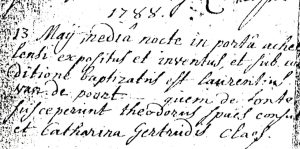 1788.
13 May media nocte in porta ache
lensi expositus et inventus, et sub con
ditione baptizatus est Laurentius
van de poort. quem de fonte
susceperunt theodorus
et Catharina Gertrudis Claes.